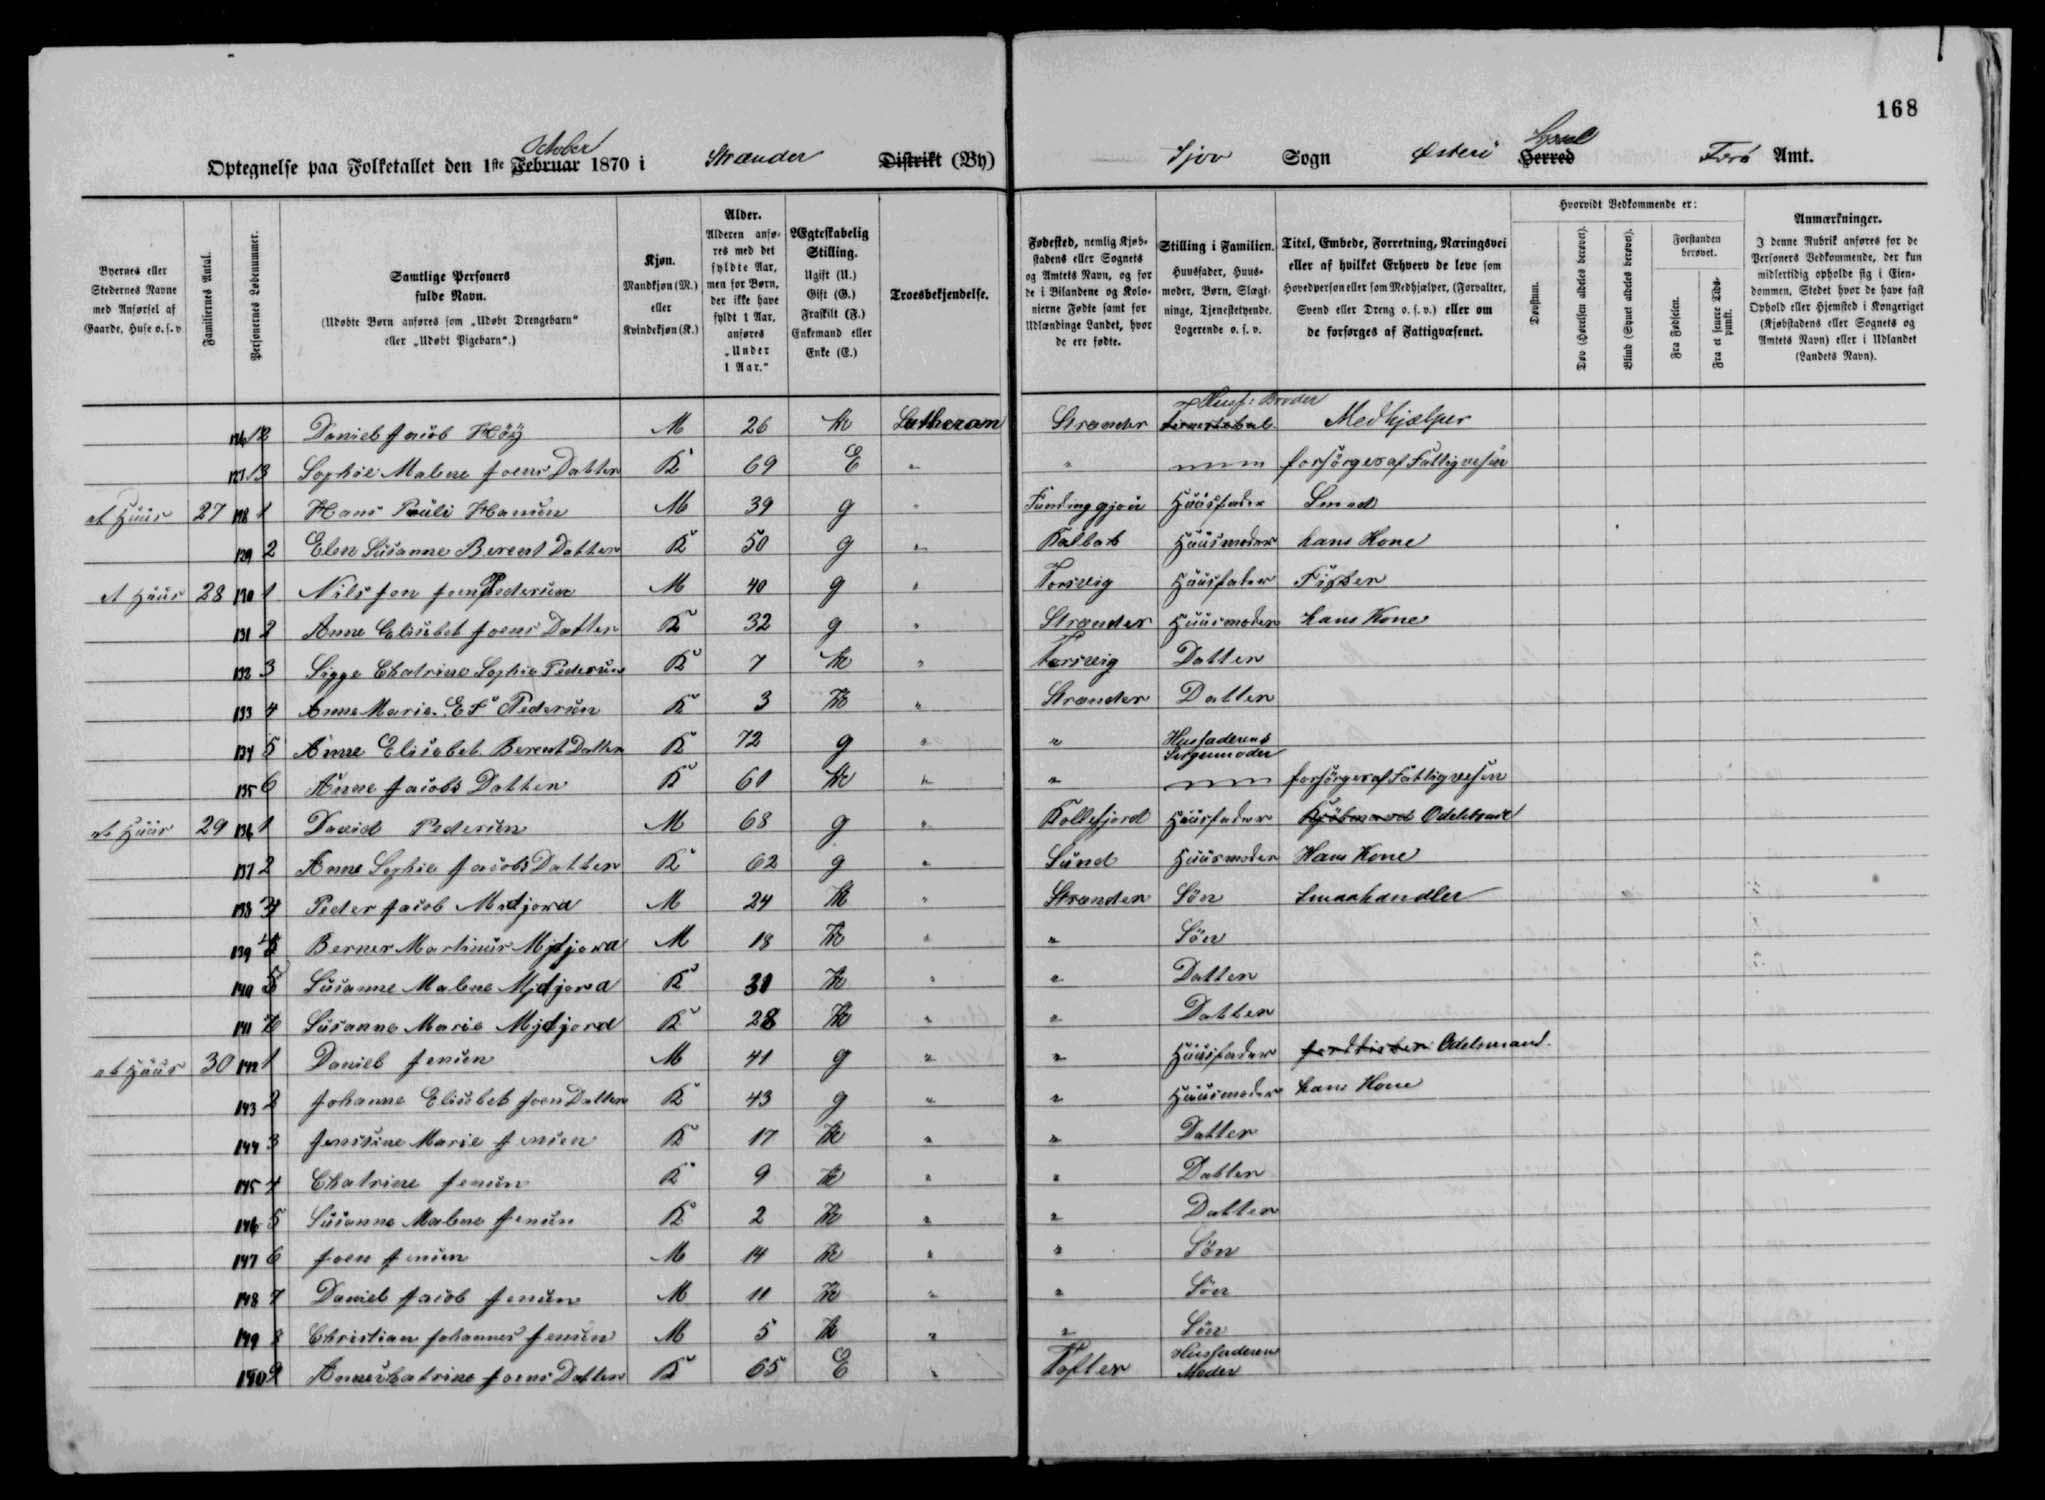 168
October
Optegnelse paa Folketallet den 1ste Februar 1870 i Strænder Distrikt (By) Sjov Sogn Österö Herred Syssel Færö Amt.
Byernes eller Stedernes Navne med Anførsel af Gaarde, Huse o. s. v.
Familiernes Antal.
Personernes Løbenummer.
Samtlige Personers fulde Navn. (Udøbte Børn anføres som „Udøbt Drengebarn“ eller „Udøbt Pigebarn“.)
Kjøn. Mandkjøn (M.) eller Kvindekjøn (K.)
Alder. Alderen anføres med det fyldte Aar, men for Børn, der ikke have fyldt 1 Aar, anføres „Under 1 Aar.“
Ægteskabelig Stilling. Ugift (U.) Gift (G.) Fraskilt (F.) Enkemand eller Enke (E.)
Troesbekjendelse.
Fødested, nemlig Kjøbstadens eller Sognets og Amtets Navn, og for de i Bilandene og Kolonierne Fødte samt for Udlændinge Landet, hvor de ere fødte.
Stilling i Familien. Huusfader, Huusmoder, Børn, Slægtninge, Tjenestetyende, Logerende o. s. v.
Titel, Embede, Forretning, Næringsvei eller af hvilket Erhverv de leve som Hovedperson eller som Medhjælper, (Forvalter, Svend eller Dreng o. s. v.) eller om de forsørges af Fattigvæsenet.
Hvorvidt Vedkommende er:
Døvstum.
Døv (Hørelsen aldeles berøvet).
Blind (Synet aldeles berøvet).
Forstanden berøvet.
Fra Fødselen.
Fra et senere Tidspunkt.
Anmærkninger. I denne Rubrik anføres for de Personers Vedkommende, der kun midlertidig opholde sig i Eiendommen, Stedet hvor de have fast Ophold eller Hjemsted i Kongeriget (Kjøbstadens eller Sognets og Amtets Navn) eller i Udlandet (Landets Navn).
126 12 Daniel Jacob Höy M 26 U Lutheran Strænder Husf: Broder Medhjælper
127 13 Sophie Malene Joens Datter K 69 E " " forsörges af Fattigvesen
et Huus 27 128 1 Hans Pauli Hansen M 39 g " Fundinggjov Huusfader Smed
129 2 Elen Susanne Berent Datter K 50 g " Kalbak Huusmoder hans Kone
et Huus 28 130 1 Nils Jen Joen Pedersen M 40 g " Torsvig Huusfader Fisker
131 2 Anne Elisebet Joens Datter K 32 g " Strænder Huusmoder hans Kone
132 3 Sigge Chatrine Sophie Pedersen K 7 U " Torsvig Datter
133 4 Anne Marie E S Pedersen K 3 U " Strænder Datter
134 5 Anne Elisebet Berent Datter K 72 g " " Husfaderens Svigermoder
135 6 Anne Jacobs Datter K 61 U " " forsörges af Fattigvesen
et Huus 29 136 1 David Pedersen M 68 g " Kollefjord Huusfader Kjöbmand Odelsmand
137 2 Anne Sophie Jacobs Datter K 62 g " Sund Huusmoder Hans Kone
138 3 Peder Jacob Midfjord M 24 U " Strænder Sön Smaahandler
139 4 Berner Martinus Midfjord M 18 U " " Sön
140 5 Susanne Malene Midfjord K 31 U " " Datter
141 6 Susanne Marie Midfjord K 28 U " " Datter
et Huus 30 142 1 Daniel Jensen M 41 g " " Huusfader Odelsmand.
143 2 Johanne Elisebet Joen Datter K 43 g " " Huusmoder hans Kone
144 3 Jensine Marie Jensen K 17 U " " Datter
145 4 Chatrine Jensen K 9 U " " Datter
146 5 Susanne Malene Jensen K 2 U " " Datter
147 6 Joen Jensen M 14 U " " Sön
148 7 Daniel Jacob Jensen M 11 U " " Sön
149 8 Christian Johannes Jensen M 5 U " " Sön
150 9 Anne Chatrine Joens Datter K 65 E " Tofter Husfaderens Moder